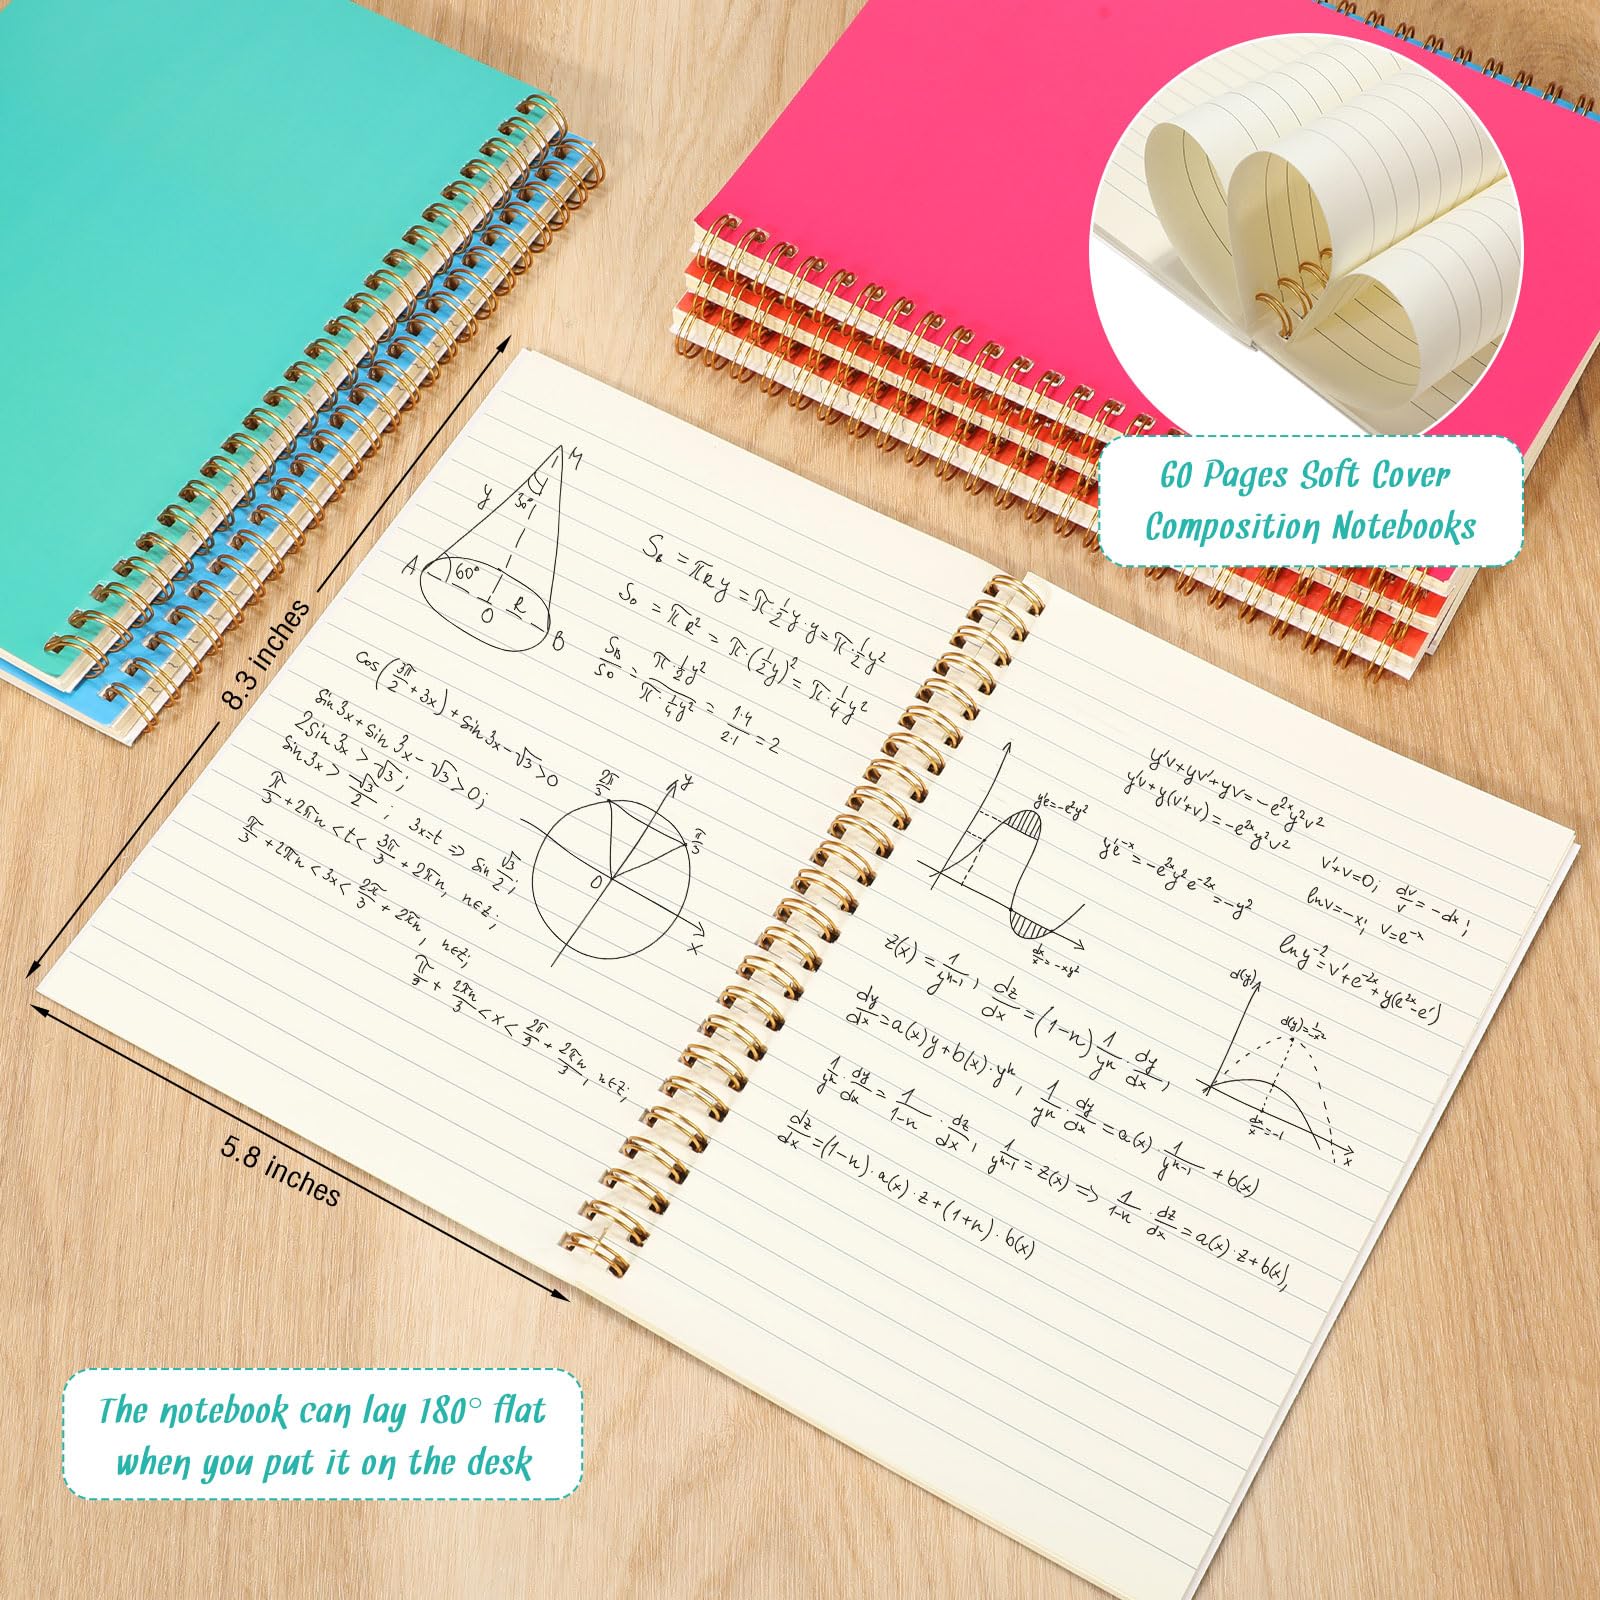 60 Pages Soft Cover
Composition Notebooks
8.3 inches
5.8 inches
M
y
30°
A
60°
O
R
B
S_b = πRy = π·½y·y = π·½y²
S_0 = πR² = π·(½y)² = π·¼y²
S_b/S_0 = π·½y²/π·¼y² = 1·4/2·1 = 2
cos(3π/2 + 3x) + sin 3x − √3 > 0
sin 3x + sin 3x − √3 > 0;
2 sin 3x > √3;
sin 3x > √3/2 ; 3x = t ⇒ sin √3/2;
π/3 + 2πn < t < 3π/3 + 2πn, n∈z;
π/3 + 2πn < 3x < 2π/3 + 2πn, n∈z;
π/9 + 2πn/3 < x < 2π/9 + 2πn/3, n∈z;
2π/3
y
π/3
O
x
y'v + yv' + yv = −e²ˣy²v²
y'v + y(v' + v) = −e²ˣy²v²
y'e⁻ˣ = −e²ˣy²e⁻²ˣ = −y²
v' + v = 0; dv/v = −dx;
ln v = −x; v = e⁻ˣ
ln y⁻² = v' + e⁻²ˣ + y(e²ˣ − e')
y'e = −e²y²
dx/x = −xy²
z(x) = 1/yⁿ⁻¹, dz/dx = (1−n) 1/yⁿ · dy/dx,
dy/dx = a(x)y + b(x)·yⁿ, 1/yⁿ · dy/dx = a(x)· 1/yⁿ⁻¹ + b(x)
1/yⁿ · dy/dx = 1/1−n · dz/dx, 1/yⁿ⁻¹ = z(x) ⇒ 1/1−n · dz/dx = a(x)·z + b(x),
dz/dx = (1−n)·a(x)·z + (1+n)·b(x)
d(y)
x
The notebook can lay 180° flat
when you put it on the desk